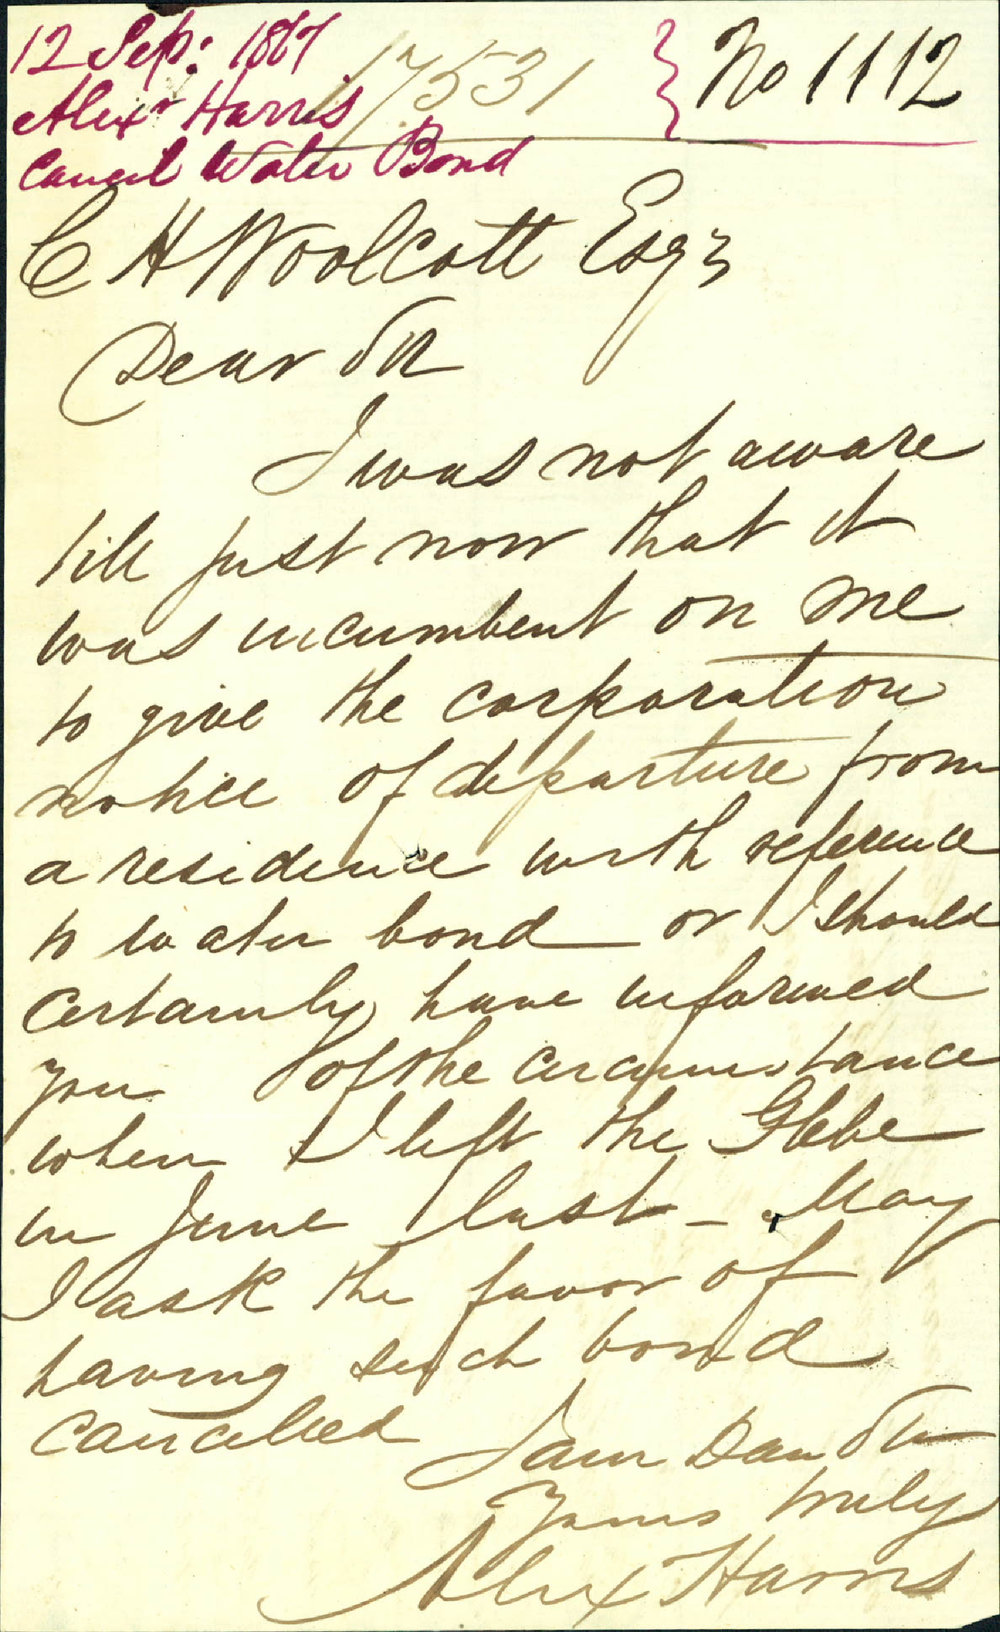 12 Sep: 1867
17531
No 1112
Alexr Harris
Cancel Water Bond
C H Woolcott Esqr
Dear Sir
I was not aware
till just now that it
was incumbent on me
to give the corporation
notice of departure from
a residence with reference
to water bond or I should
certainly have informed
you of the circumstance
when I left the Glebe
in June last - May
I ask the favor of
having such bond
cancelled
I am Dear Sir
Yours truly
Alex Harris